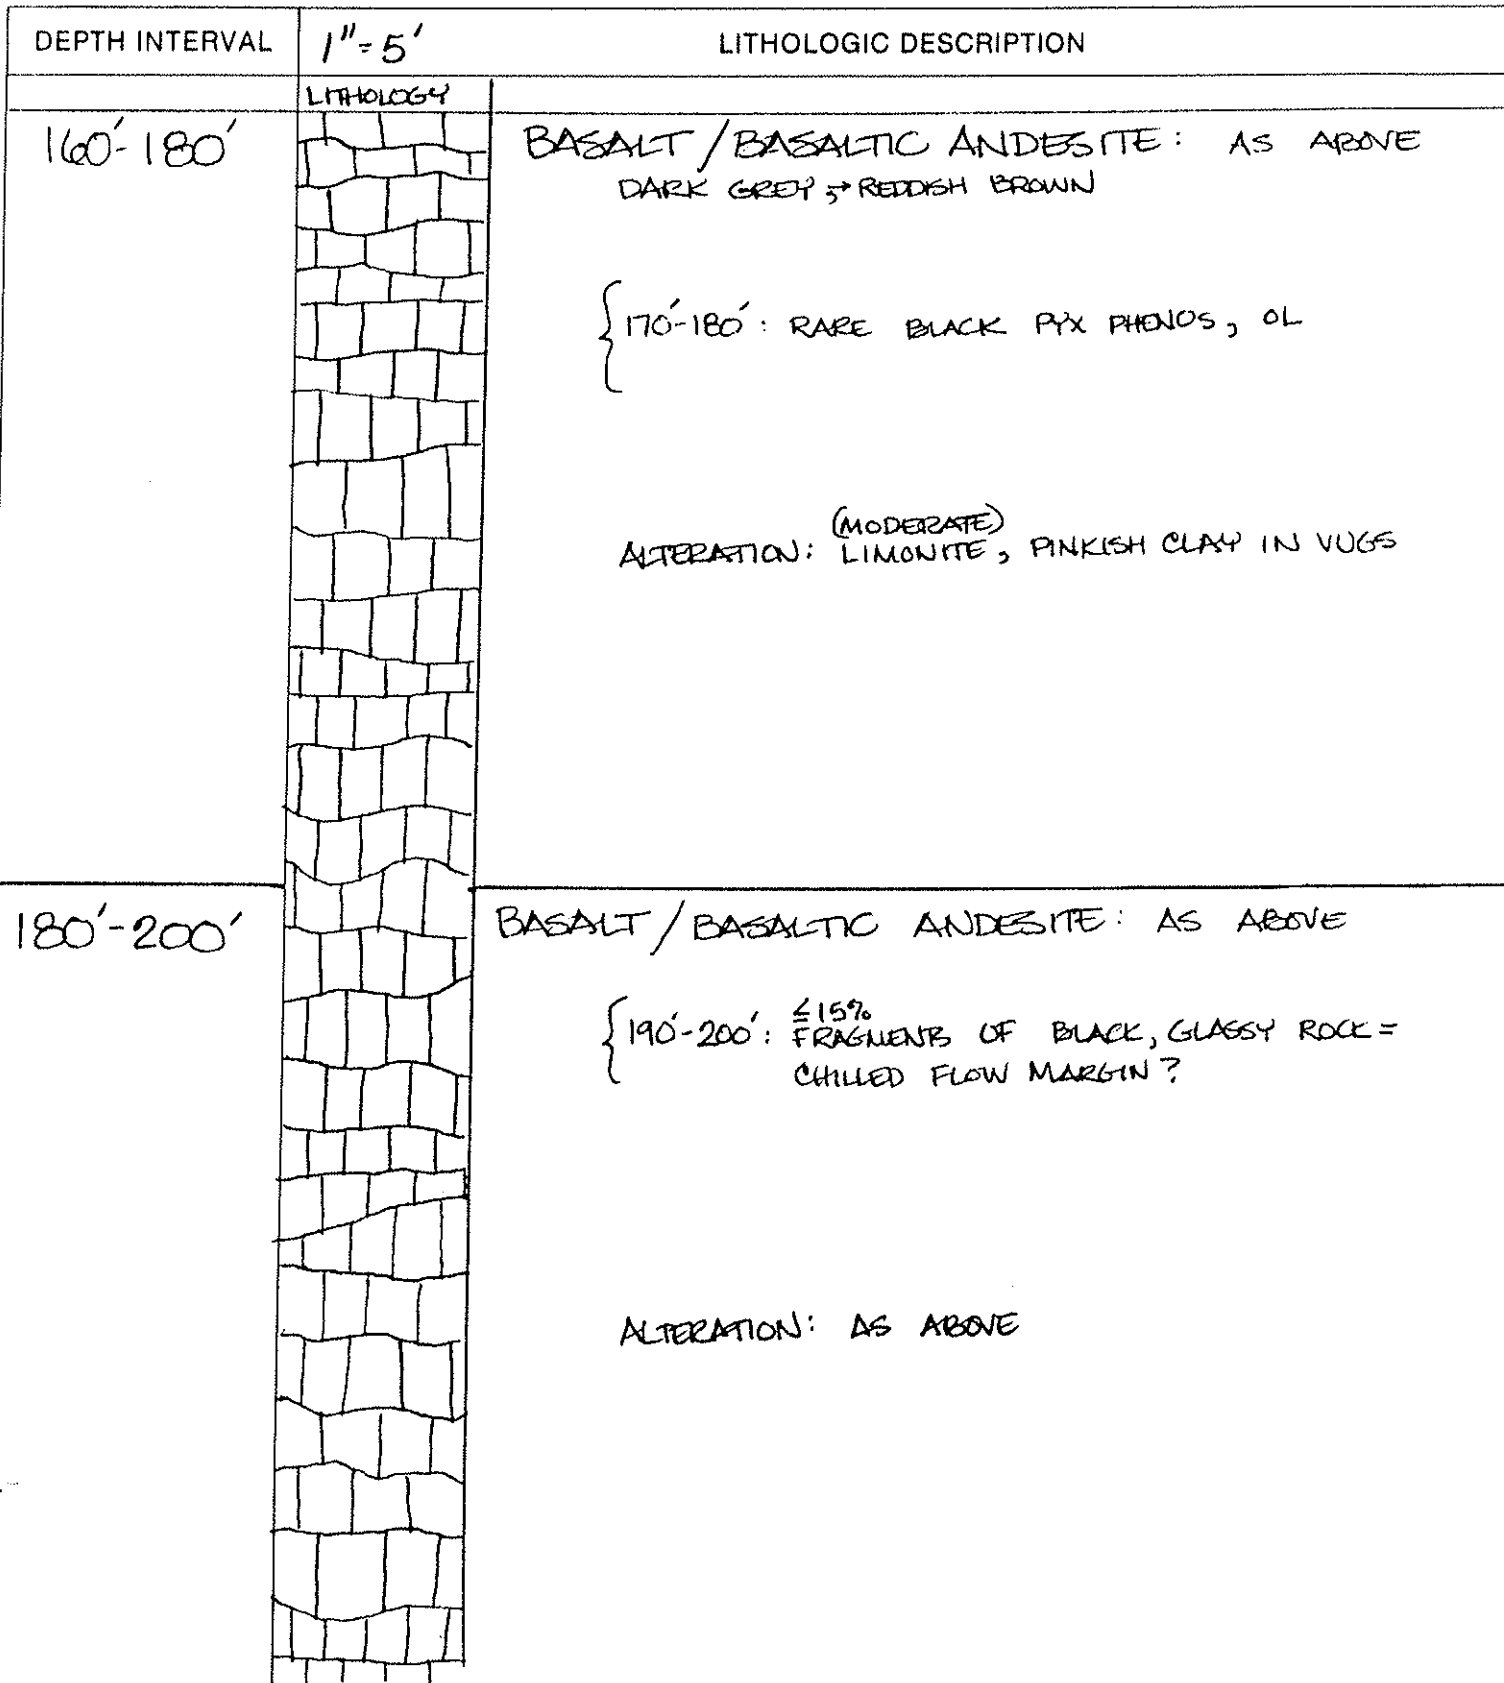 DEPTH INTERVAL 1"=5' LITHOLOGIC DESCRIPTION
LITHOLOGY
160'-180' BASALT / BASALTIC ANDESITE: AS ABOVE
DARK GREY, → REDDISH BROWN
170'-180': RARE BLACK PYX PHENOS, OL
(MODERATE)
ALTERATION: LIMONITE, PINKISH CLAY IN VUGS
180'-200' BASALT / BASALTIC ANDESITE: AS ABOVE
≤15%
190'-200': FRAGMENTS OF BLACK, GLASSY ROCK =
CHILLED FLOW MARGIN?
ALTERATION: AS ABOVE